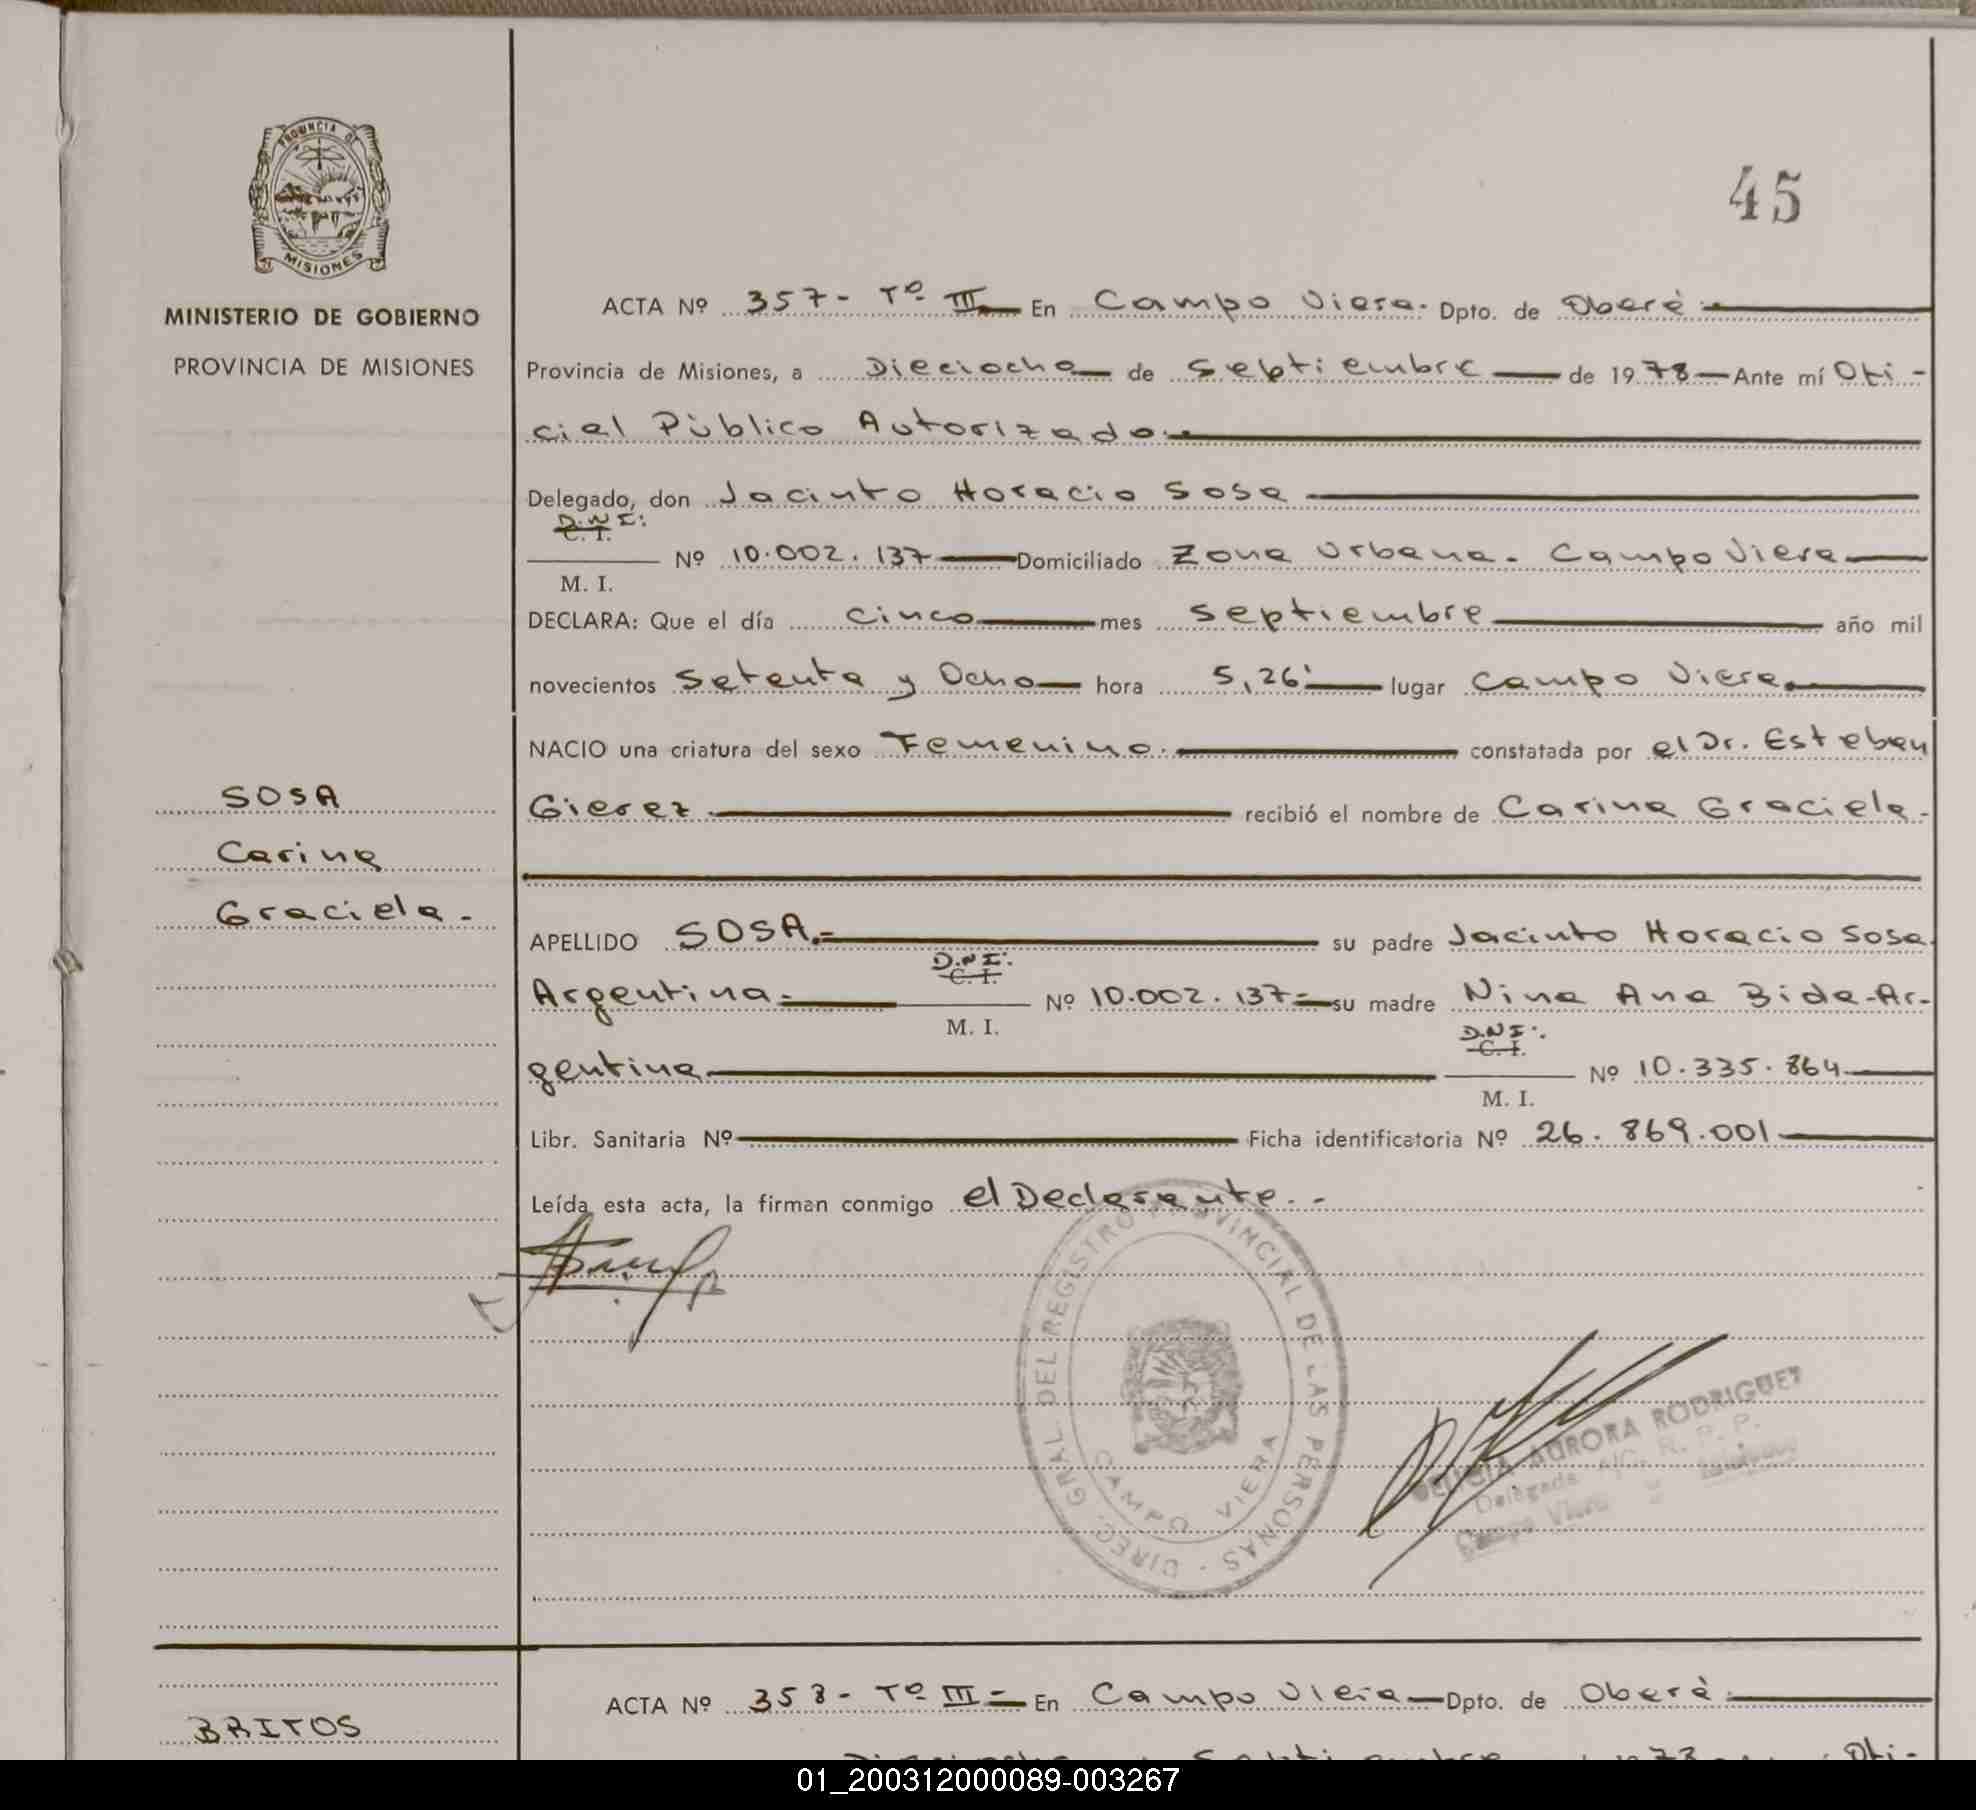 PROVINCIA DE
MISIONES
MINISTERIO DE GOBIERNO
PROVINCIA DE MISIONES
45
ACTA Nº 357- Tº III En Campo Viera. Dpto. de Oberá
Provincia de Misiones, a Dieciocho de Septiembre de 1978 Ante mí Ofi-
cial Público Autorizado.
Delegado, don Jacinto Horacio Sosa
D.N.I:
C. I.
Nº 10.002.137 Domiciliado Zona Urbana. Campo Viera
M. I.
DECLARA: Que el día cinco mes septiembre año mil
novecientos Setenta y Ocho hora 5,26' lugar Campo Viera.
NACIO una criatura del sexo Femenino. constatada por el Dr. Esteban
SOSA
Gierez recibió el nombre de Carina Graciela.
Carina
Graciela.
APELLIDO SOSA.- su padre Jacinto Horacio Sosa.
D.N.I:
C. I.
Argentina- Nº 10.002.137- su madre Nina Ana Bida-Ar-
M. I.
D.N.I:
C. I.
gentina Nº 10.335.864
M. I.
Libr. Sanitaria Nº Ficha identificatoria Nº 26.869.001
Leída esta acta, la firman conmigo el Declarante.-
DIREC. GRAL DEL REGISTRO PROVINCIAL DE LAS PERSONAS
CAMPO VIERA
AURORA RODRIGUEZ
Delegada A/C. R. P. P.
Campo Viera
ACTA Nº 358- Tº III- En Campo Viera Dpto. de Oberá
BRITOS
01_200312000089-003267